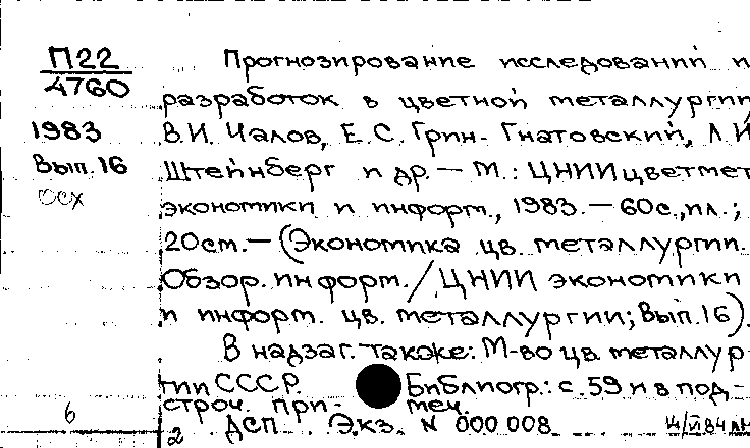 П22
4760
1983
Вып. 16
осх
Прогнозирование исследований и
разработок в цветной металлургии
В.И. Чалов, Е.С. Грин-Гнатовский, Л.И
Штейнберг и др. — М.: ЦНИИцветмет
экономики и информ., 1983. — 60с., ил.;
20см. — (Экономика цв. металлургии.
Обзор. информ. / ЦНИИ экономики
и информ. цв. металлургии; Вып. 16).
В надзаг. также: М-во цв. металлур-
гии СССР. Библиогр.: с. 59 и в под-
строч. при- меч.
6
2
ДСП Экз. N 000 008